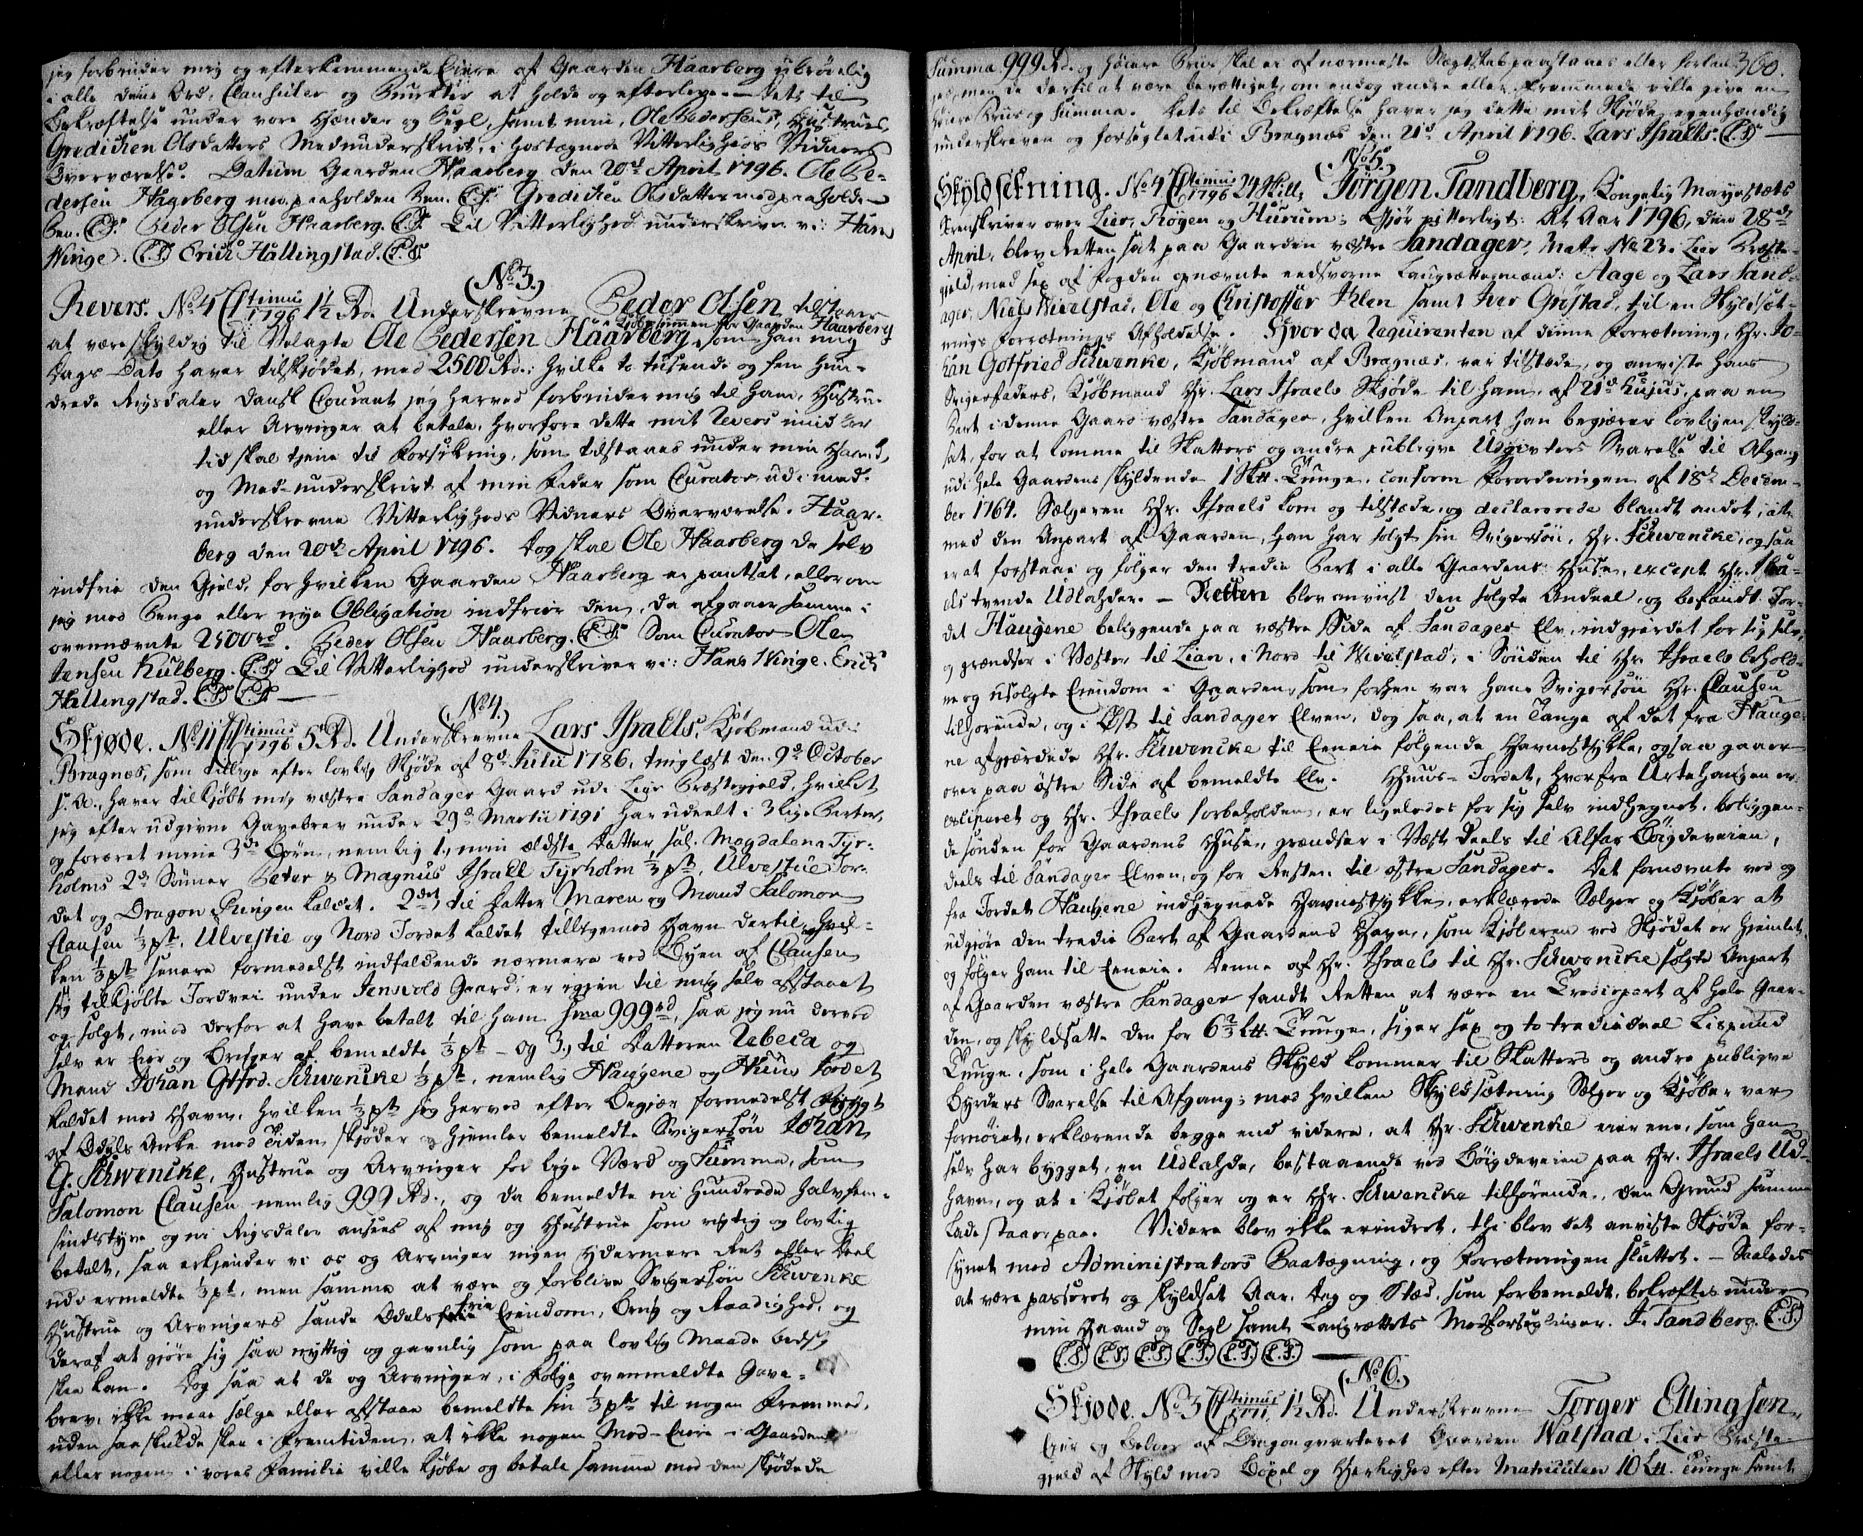 jeg forbinder mig og efterkommende Eiere af Gaarden Haarberg ubrødelig
i alle denne Ord, Clausuler og Puncter at holde og efterleve. — Dets til
Bekræftelse under vore Hænder og Segl, samt min, Ole Pedersens, Hustrues,
Gredichen Olsdatters Medunderskrivt, i hostegnede Vitterligheds Vidners
Overværelse. Datum Gaarden Haarberg den 20de April 1796. Ole Pe-
dersen Haarberg med paaholden Pen. (L.S.) Gredichen Olsdatter med paaholden
Pen. (L.S.) Peder Olsen Haarberg. (L.S.) Til Vitterlighed underskriver vi: Hans
Winge. (L.S.) Erich Hallingstad. (L.S.)
(No 3.)
Revers. No 4 Ctimus 1796 1½ Rd. Underskrevne Peder Olsen tilstaar
at være skyldig til Velagte Ole Pedersen Haarberg, Kjøbesummen for Gaarden Haarberg som han mig
Dags Dato haver tilskjødet, med 2500 Rd.; hvilke to tusende og fem Hun-
drede Rigsdaler Dansk Courant jeg herved forbinder mig til ham, Hustrue
eller Arvinger at betale, hvorfore dette mit Revers imidler
tid skal tjene til Forsikring, som tilstaaes under min Haand,
og Med-underskrivt af min Fader som Curator udi med-
underskrevne Vitterligheds Vidners Overværelse. Haar-
berg den 20de April 1796. Dog skal Ole Haarberg da selv
indfrie den Gjeld, for hvilken Gaarden Haarberg er pantsat, eller om
jeg med Penge eller nye Obligation indfrier den, da afgaaer samme i
ovennævnte 2500 rd. Peder Olsen Haarberg. (L.S.) Som Curator Ole
Jensen Kulberg. (L.S.) Til Vitterlighed underskriver vi: Hans Winge. Erich
Hallingstad. (L.S.) (L.S.) —
(No 4.)
Skjøde. No 11 Ctimus 1796 5 Rd. Underskrevne Lars Israels, Kjøbmand udi
Bragnæs, som tillige efter lovlig Skjøde af 8de Julii 1786, tinglæst den 9de October
s. A., haver tilkjøbt mig væstre Sandager Gaard udi Lier Præstegjeld, hvilket
jeg efter udgivne Gavebrev under 29de Martii 1791 har udeelt i 3 lige Parter,
og foræret mine 3de Børn, nemlig 1, min ældste Datter, sal. Magdalena Tyr-
holms 2de Sønner Peter & Magnus Israel Tyrholm ⅓ pt, Ulvestue Jor-
det og Dragon Ringen kaldet. 2det, til Datter Maren og Mand Salomon
Clausen ⅓ pt. Ulvestie og Nord Jordet kaldet tilligemed Havn dertil, hvil-
ken ⅓ pt senere formedelst indfaldende nærmere ved Byen af Clausen
sig tilkjøbte Jordvei under Jensvold Gaard; er igjen til mig selv afstaaet
og solgt, imod derfor at have betalt til ham Sma 999 rd, saa jeg nu derved
selv er Eier og Bruger af bemeldte ⅓ pt – og 3, til Datteren Rebeca og
Mand Johan Gtfrd. Schwencke ⅓ pt, nemlig Haugene og Huus Jordet
kaldet med Havn, hvilken ⅓ pt jeg herved efter Begjær formedelst Bygget
af Odels Anke med Tiden, skjøder og hjemler bemeldte Svigersøn Johan
G. Schwencke, Hustrue og Arvinger for lige Værd og Summa, som
Salomon Clausen nemlig 999 Rd., og da bemeldte ni Hundrede halvfem-
sindstyve og ni Rigsdaler ansees af mig og Hustrue som rigtig og lovlig
betalt, saa erkjender vi os og Arvinger ingen ydermere Ret eller Deel
udi ermeldte ⅓ pt, men samme at være og forblive Svigersøn Schwencke
Hustrue og Arvingers sande Odels frie Eiendom, Brug og Raadighed, og
deraf at gjøre sig saa nyttig og gavnlig som paa lovlig Maade bedst
skee kan. Dog saa at de og Arvinger, i Følge ovenmeldte Gave-
brev, ikke maae sælge eller afstaae bemeldte sin ⅓ pt til nogen Fremmed,
uden saa skulde skee i Fremtiden, at ikke nogen Med-Eiere i Gaarden
eller nogen i vores Familie ville kjøbe og betale samme med den skjødede
Summa 999 Rd. og høiere Priis skal er af nærmeste Slægtskab paastaaes eller forlan- 360.
ges, men de dertil at være berættiget, om endog andre eller fremmede ville give en
høiere Priis og Summa. Dets til Bekræftelse haver jeg dette mit Skjøde egenhændig
underskreven og forseglet udi Bragnæs den 21de April 1796. Lars Israels. (L.S.) —
(No 5.)
Skyldsetning. No 4 Ctimus 1796 24 Skill. Jørgen Tandberg, Kongelig Mayestæts
Sorenskriver over Lier, Røgen og Hurum; Gjør vitterligt: At Aar 1796, den 28de
April, blev Retten sat paa Gaarden væstre Sandager, Matr. No 23. Lier Præste-
gjeld, med sex af Fogden opnævnte eedsvorne Laugrettesmænd: Aage og Lars Sand-
ager, Niels Wivelstad, Ole og Christoffer Ihlen samt Iver Grøstad, til en Skyldsæt-
nings Forretnings Afholdelse. Hvor da Requirenten af denne Forretning, Hr. Jo-
han Gotfried Schwenke, Kjøbmand af Bragnæs, var tilstæde, og anviste Hans
Svigerfaders, Kjøbmand Hr. Lars Israels Skjøde til ham, af 21de hujus, paa en
Part i denne Gaard væstre Sandager, hvilken Anpart han begjærer lovligen skyld-
sat, for at komme til Skatters og andre publiqve Udgivters Svarelse til Afgang
udi hele Gaardens skyldende 1 Skt. Tunge, conform Forordningen af 18de Decem-
ber 1764. Sælgeren Hr. Israels kom og tilstæde, og declarerede blandt andet, at
med den Anpart af Gaarden, han har solgt sin Svigersøn, Hr. Schwencke, og saa
er at forstaae og følger den tredie Part i alle Gaardens Huse, except Hr. Isra-
els tvende Udlahder. — Retten blev anviist den solgte Andeel, og befandt Jor-
det Haugene beliggende paa væstre Side af Sandager Elv, indgjærdet for sig selv,
og grændser i Væster til Lian, i Nord til Wivelstad, i Sønden til Hr. Israels behold-
ne og usolgte Eiendom i Gaarden, som forhen var hans Svigersøn Hr. Clausen
tilhørende, og i Øst til Sandager Elven, dog saa, at en Tange af det fra Hauge-
ne afgjerdede Hr. Schwencke til Eeneie følgende Havnestykke, ogsaa gaaer
over paa østre Side af bemeldte Elv. Huus-Jordet, hvorfra Urtehaugen er
excliperet og Hr. Israels forbeholden, er ligeledes for sig selv indhegnet, beliggen-
de sønden for Gaardens Huse, grændser i Væst deels til Alfar Bøigdeveien,
deels til Sandager Elven, og for Resten til østre Sandager. Det fornævnte ved og
fra Jordet Haugene indhegnede Havnestykke, erklærede Sælger og Kjøber at
udgjøre den tredie Part af Gaardens Havn, som Kjøberen ved Skjødet er hjemlet,
og følger ham til Eeneie. Denne af Hr. Israels til Hr. Schwencke solgte Anpart
af Gaarden væstre Sandager fandt Retten at være en Trediepart af hele Gaar-
den, og skyldsatte den for 6⅔ Ltt. Tunge, siger sex og to trediedeel Lispund
Tunge, som i hele Gaardens Skyld kommer til Skatters og andre publiqve
Byrders Svarelse til Afgang; med hvilken Skyldsætning Sælger og Kjøber var
fornøiet, erklærende begge end videre, at Hr. Schwenke eier ene, som han
selv har bygget, en Udlahde, bestaaende ved Bøigdeveien paa Hr. Israels Ud-
havn, og at i Kjøbet følger og er Hr. Schwencke tilhørende, den Grund samme
Lade staaer paa. Videre blev ikke erindret, thi blev det anviste Skjøde for-
synet med Administrators Paategning, og Forretningen sluttet. — Saaledes
at være passeret og skyldsat Aar, Dag og Sted, som forbemeldt, bekræftes under
min Haand og Segl samt Laugrettets Medforseglinger. J. Tandberg. (L.S.)
(L.S.) (L.S.) (L.S.) (L.S.) (L.S.) (L.S.) —
(No 6.)
Skjøde. No 3 Ctimus 1½ Rd. Underskrevne Torger Ellingsen,
Eier og Beboer af Dragonqvarteret Gaarden Walstad i Lier Præste-
gjeld af Skyld med Bøxel og Herlighed efter Matriculen 10 Ltt. Tunge samt